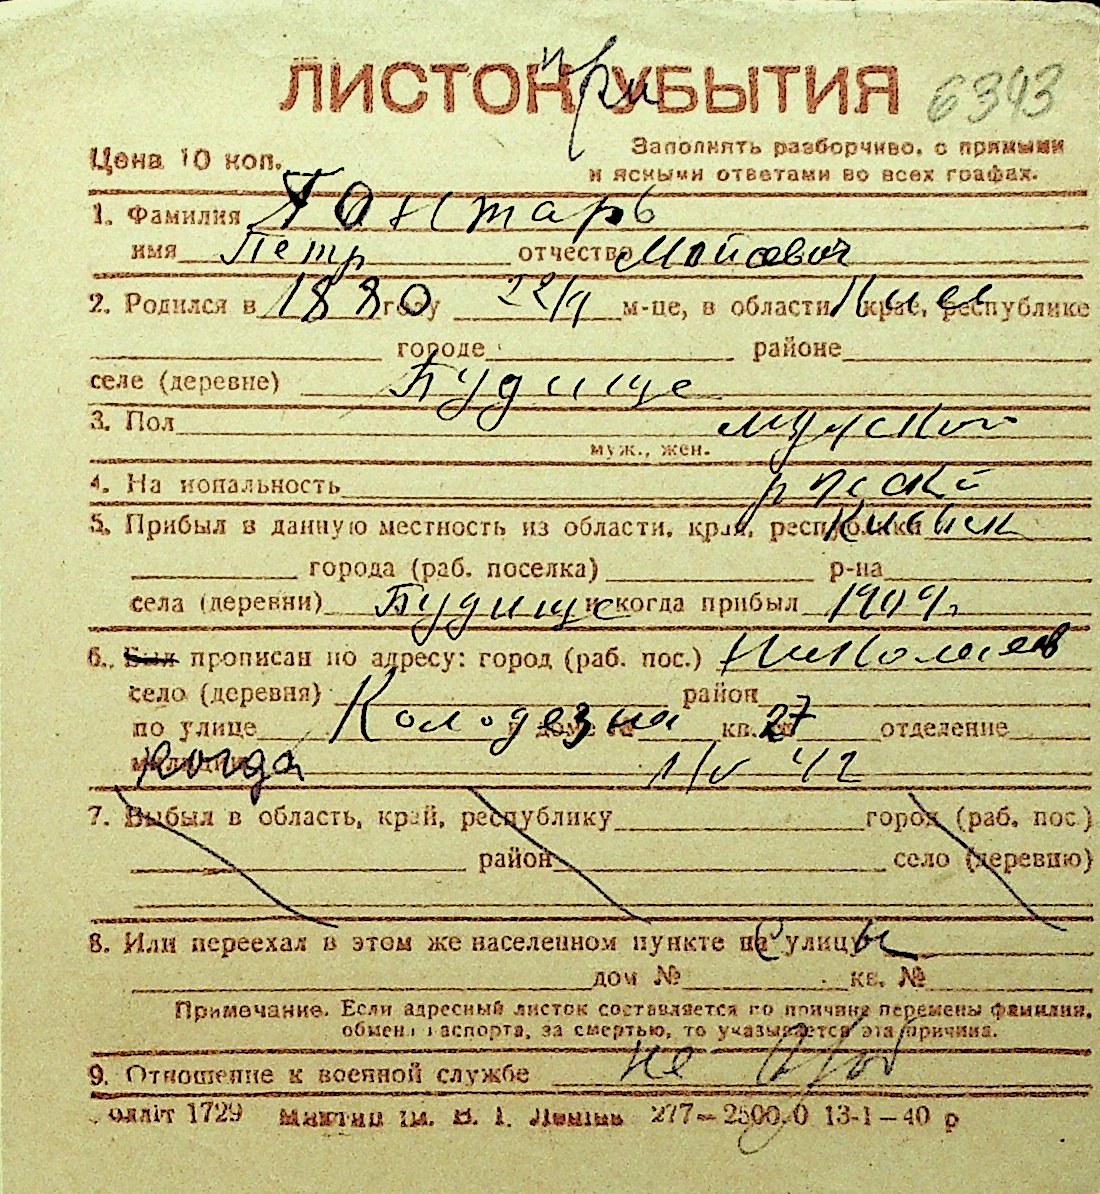 ЛИСТОК при УБЫТИЯ 6343
Цена 10 коп.
Заполнять разборчиво, с прямыми
и ясными ответами во всех графах.
1. Фамилия
имя Петр отчество Мойсевич
2. Родился в 1880 году 22/1 м-це, в области Киев крае, республике
городе районе
селе (деревне) Будище
3. Пол мужской
муж., жен.
4. На иональность руский
5. Прибыл в данную местность из области, края, республики Киевск
города (раб. поселка) р-на
села (деревни) Будище и когда прибыл 1909г.
6. Был прописан по адресу: город (раб. пос.) Николаев
село (деревня) район
по улице Колодезна в доме № кв. № 27 отделение
милиции когда 1/IV 42
7. Выбыл в область, край, республику город (раб. пос.)
район село (деревню)
8. Или переехал в этом же населенном пункте на улицу с ы
дом № кв. №
Примечание. Если адресный листок составляется по причине перемены фамилии,
обмена паспорта, за смертью, то указывается эта причина.
9. Отношение к военной службе не
Одліт 1729 277—2500,0 13-1—40 р